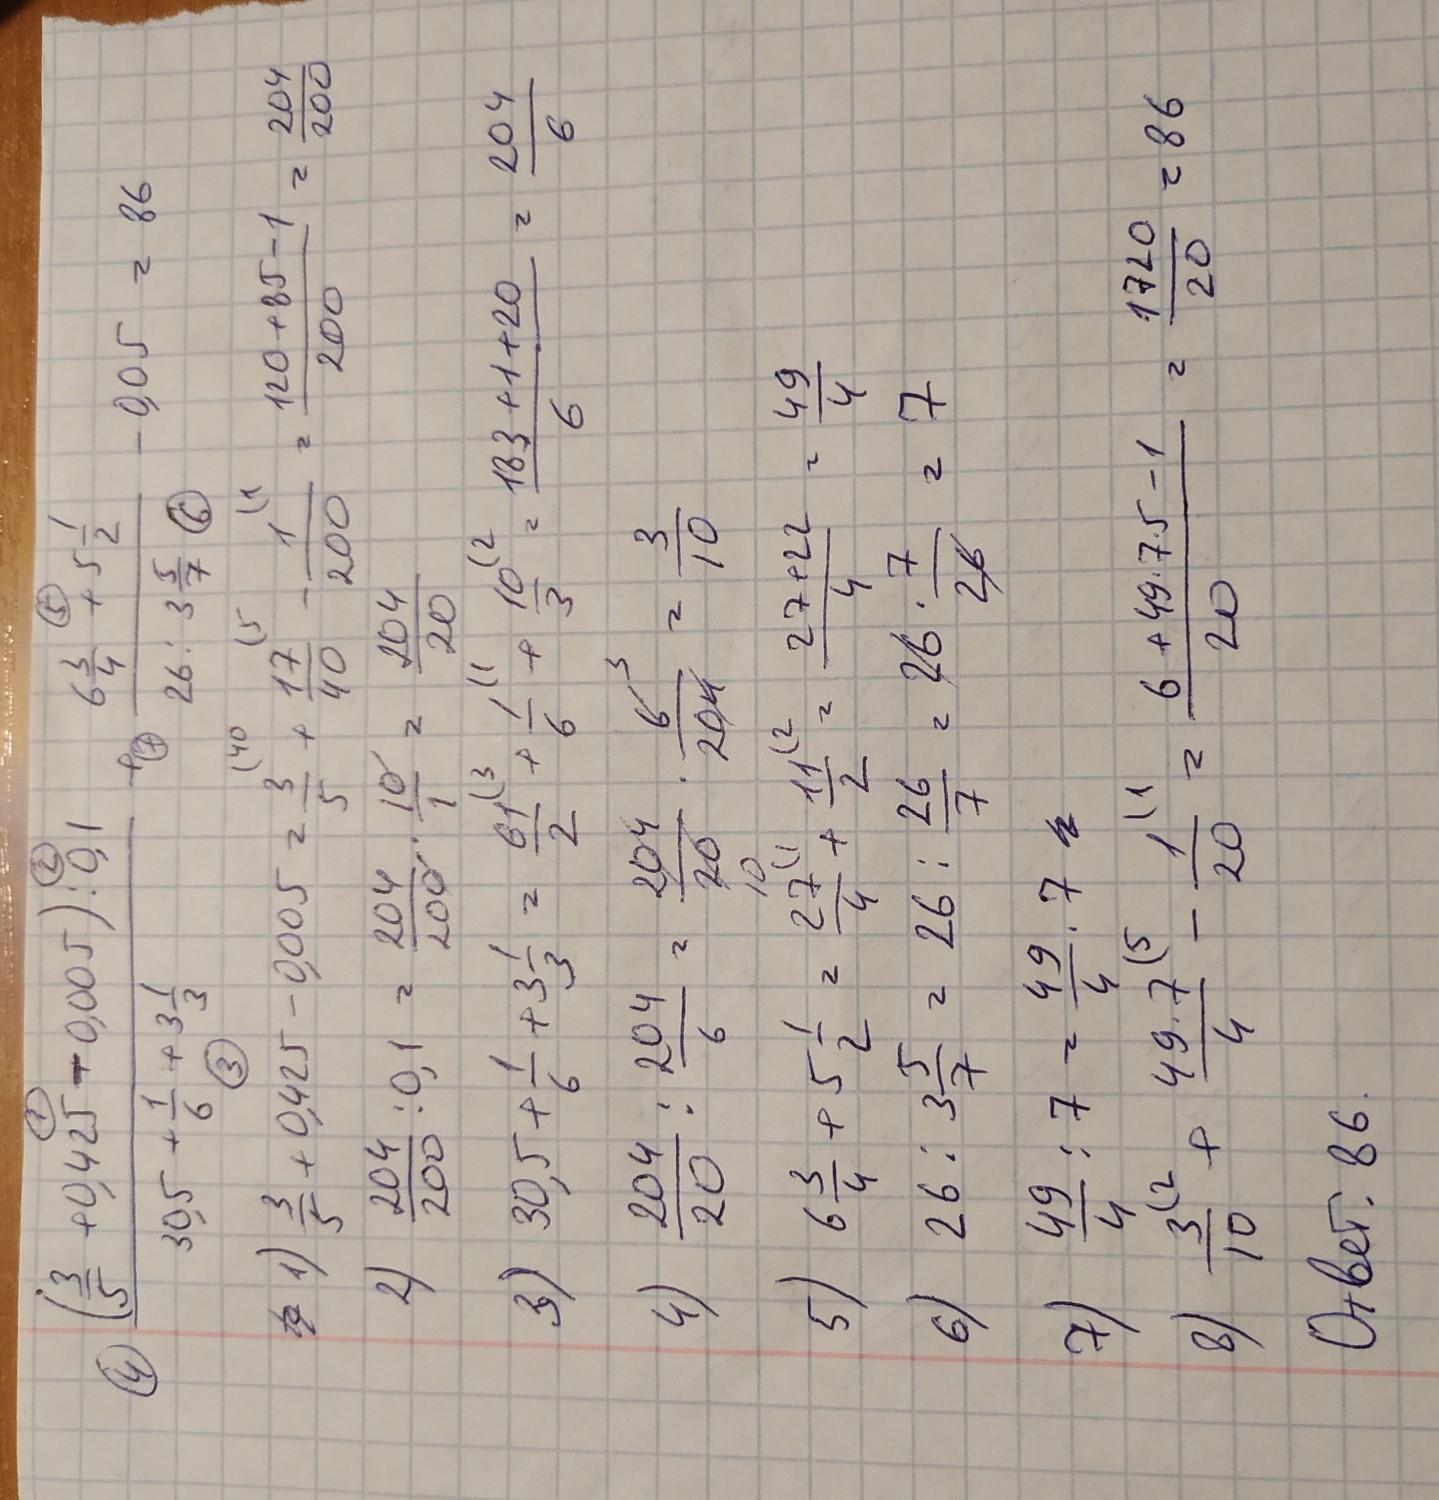 (3/5 + 0,425 - 0,005) : 0,1 / 30,5 + 1/6 + 3 1/3 + 6 3/4 + 5 1/2 / 26 : 3 5/7 - 0,05 = 86
1) 3/5 + 0,425 - 0,005 = 3/5 + 17/40 - 1/200 = 120 + 85 - 1 / 200 = 204/200
2) 204/200 : 0,1 = 204/200 · 10/1 = 204/20
3) 30,5 + 1/6 + 3 1/3 = 61/2 + 1/6 + 10/3 = 183 + 1 + 20 / 6 = 204/6
4) 204/20 : 204/6 = 204/20 · 6/204 = 3/10
5) 6 3/4 + 5 1/2 = 27/4 + 11/2 = 27 + 22 / 4 = 49/4
6) 26 : 3 5/7 = 26 : 26/7 = 26 · 7/26 = 7
7) 49/4 : 7 = 49/4 · 7
8) 3/10 + 49·7/4 - 1/20 = 6 + 49·7·5 - 1 / 20 = 1720/20 = 86
Ответ: 86.